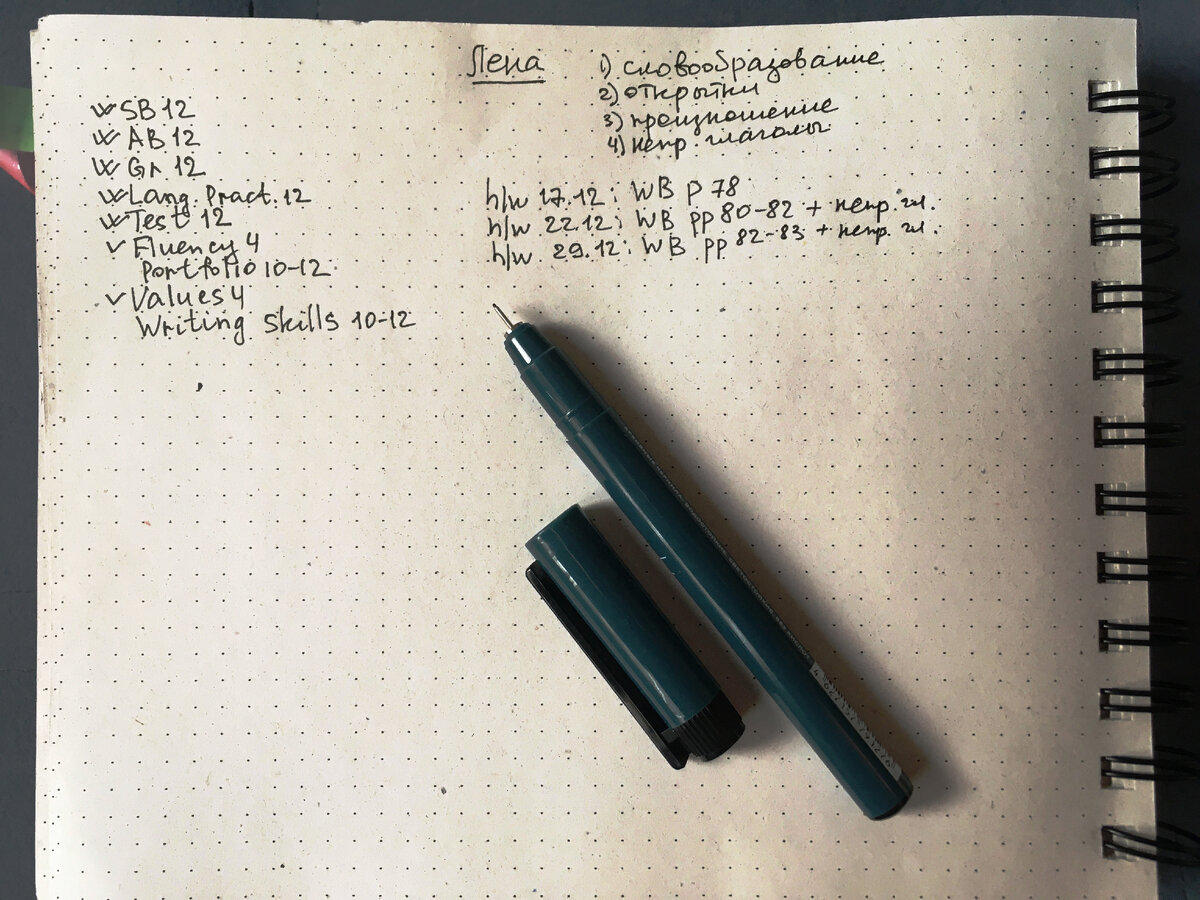 Лена
1) словообразование
2) открытки
3) произношение
4) непр. глаголы
SB 12
AB 12
Gr 12
Lang. Pract. 12
Test 12
Fluency 4
Portfolio 10-12
Values 4
Writing skills 10-12
h/w 17.12: WB p 78
h/w 22.12: WB pp 80-82 + непр. гл.
h/w 29.12: WB pp 82-83 + непр. гл.